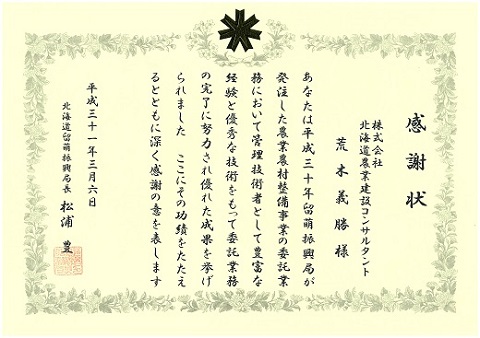 感謝状
株式会社
北海道農業建設コンサルタント
荒木義勝様
あなたは平成三十年留萌振興局が
発注した農業農村整備事業の委託業
務において管理技術者として豊富な
経験と優秀な技術をもって委託業務
の完了に努力され優れた成果を挙げ
られました　ここにその功績をたたえ
るとともに深く感謝の意を表します
平成三十一年三月六日
北海道留萌振興局長　松浦　豊